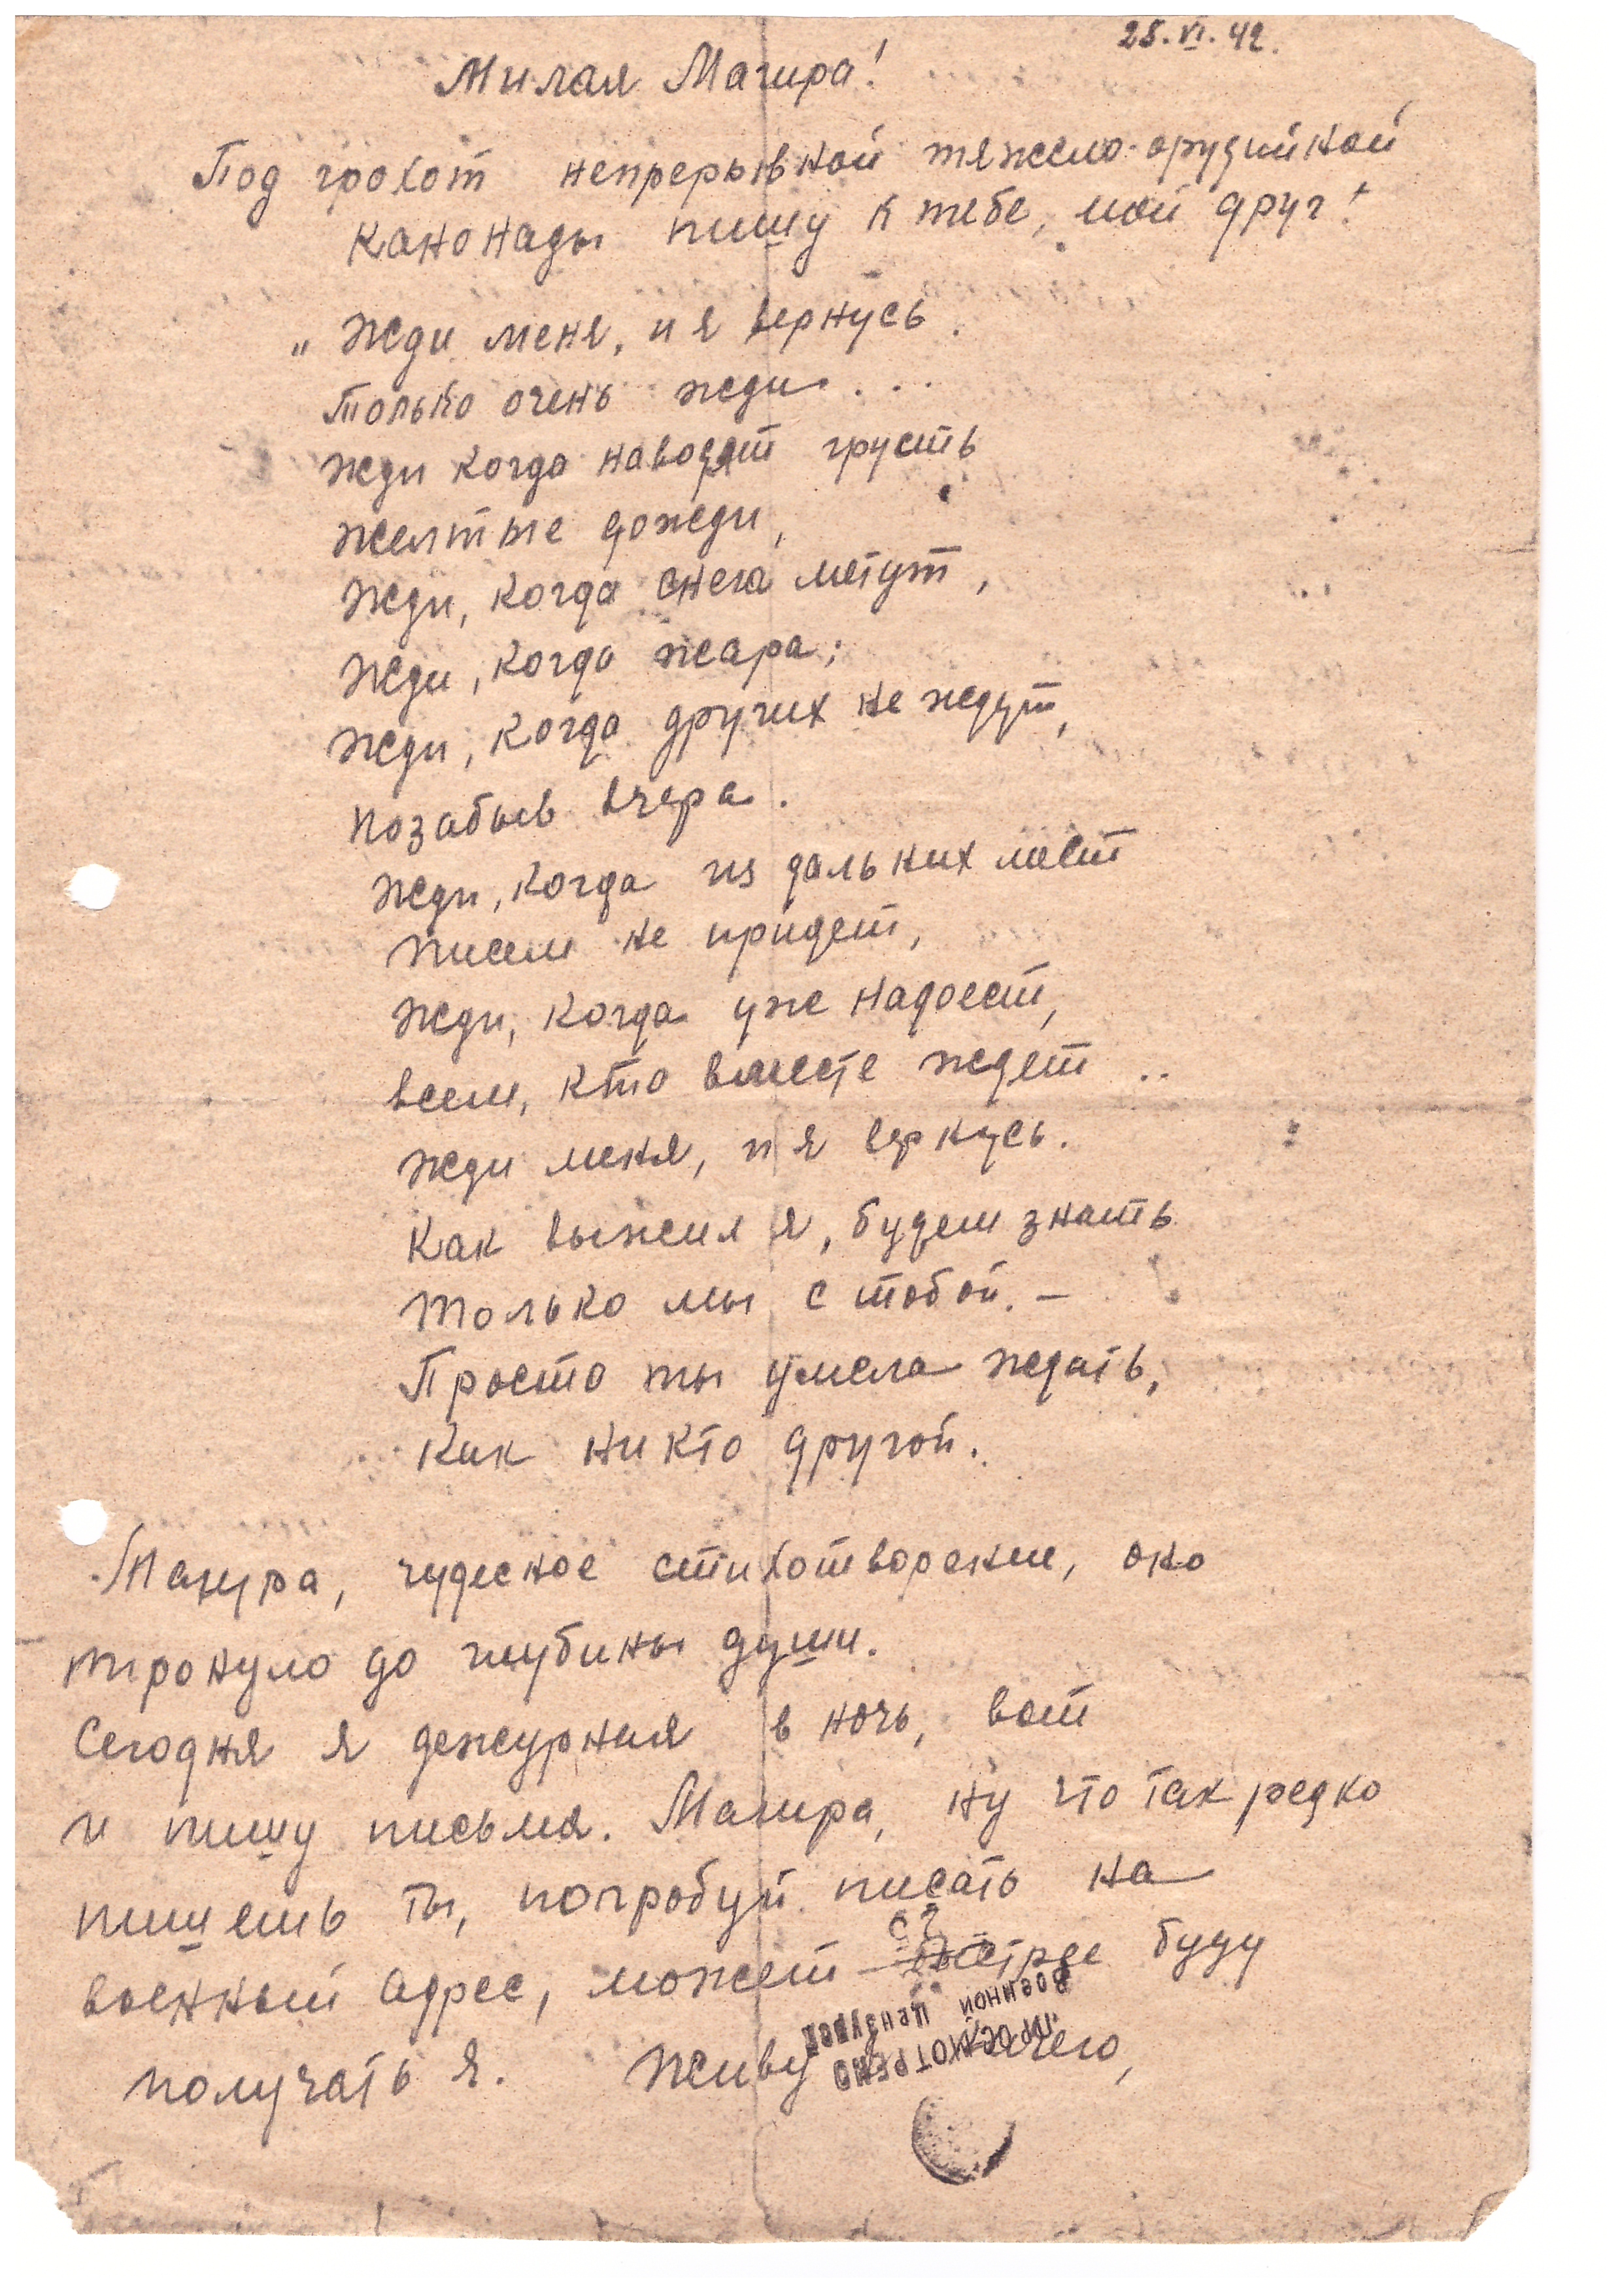 25.VI.42.
Милая Магира!
Под грохот непрерывной тяжело-орудийной
канонады пишу к тебе, мой друг!
„Жди меня, и я вернусь.
Только очень жди...
Жди когда наводят грусть
Желтые дожди,
Жди, когда снега метут,
Жди, когда жара;
Жди, когда других не ждут,
Позабыв вчера.
Жди, когда из дальних мест
Писем не придет,
Жди, когда уже надоест,
всем, кто вместе ждет..
Жди меня, и я вернусь.
Как выжил я, будем знать
Только мы с тобой. —
Просто ты умела ждать,
Как никто другой.
Магира, чудесное стихотворение, оно
тронуло до глубины души.
Сегодня я дежурная в ночь, вот
и пишу письма. Магира, ну что так редко
пишешь ты, попробуй писать на
военный адрес, может быстрее буду
получать я. Живу ничего,
ПРОСМОТРЕНО
Военной Цензурой